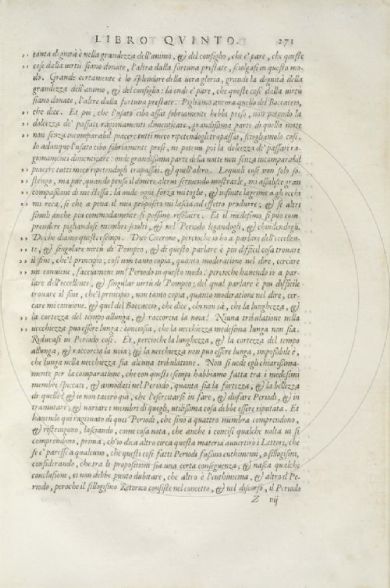 LIBRO QVINTO. 271
tanta dignità è nella grandezza dell'animo, & del consiglio, che e' pare, che queste
cose dalla virtù siano donate, l'altra dalla fortuna prestate, sciolgasi in questo mo-
do. Grande certamente è lo splendore della vera gloria, grande la dignità della
grandezza dell'animo, & del consiglio: la onde e' pare, che queste cose dalla virtù
siano donate, l'altre dalla fortuna prestate. Pigliamo ancora quello del Boccaccio,
che dice. Et poi, che l'usato cibo assai sobriamente hebbi preso, non potendo la
dolcezza de' passati ragionamenti dimenticare, grandissima parte di quella notte
non senza incomparabil piacer tutti meco ripetendogli trapassai, sciogliamolo così.
Io adunque l'usato cibo sobriamente presi, ne potetti poi la dolcezza de' passati ra-
gionamenti dimenticare: onde grandissima parte della notte non senza incomparabil
piacere tutti meco ripetendogli trapassai, & quell'altro. Laquale così non solo so-
stengo, ma pur quando penso il donere
compassione di me stessa: la onde ogni forza mi toglie, & infinite lagrime agli occhi
mi reca, si che a pena il mio proposito mi lascia ad effetto produrre, & se altri
simili anche poi commodamente si possono resolvere. Et il medesimo, si può com-
prendere pigliandosi membri sciolti, & nel Periodo legandogli, & chiudendogli.
Di che diamo questo esempio. Dice Cicerone, percioche io ho a parlare dell'eccellen-
te, & singolare virtù di Pompeo, & di questo parlare è più difficil cosa trovare
il fine, che 'l principio, così non tanto copia, quanto moderatione nel dire, cercare
mi conviene, facciamne un Periodo in questo modo: percioche havendo io a par-
lare dell'eccellente, & singular virtù di Pompeo, del qual parlare è più difficile
trovare il fine, che 'l principio, non tanto copia, quanto moderatione nel dire, cer-
care mi conviene, & quel del Boccaccio, che dice, che la lunghezza, &
la cortezza del tempo allunga, & raccorcia la noia? Niuna tribulatione nella
vecchiezza puo essere lunga: conciosia, che la vecchiezza medesima lunga non sia.
Riducasi in Periodo così. Et, percioche la lunghezza, & la cortezza del tempo
allunga, & raccorcia la noia, & la vecchiezza non può essere lunga, impossibile è,
che lunga nella vecchiezza sia alcuna tribulatione. Non si vede egli chiarissima-
mente per la comparatione, che con questi esempi habbiamo fatta tra i medesimi
membri spezzati, & annodati nel Periodo, quanta sia la fortezza, & la bellezza
di quello? & io non tacerò quì, che l'esercitarsi in fare, & disfare Periodi, & in
tramutare, & variare i membri di quegli, utilissima cosa debbe essere riputata. Et
havendo qui ragionato di quei Periodi, che sino a quattro membra comprendono,
& ristringono, lasciando, come cosa nota, che anche i concisi qualche volta in se
comprendono, prima, ch'io dica altro circa questa materia avvertirò i Lettori, che
se e' paresse a qualcuno, che questi così fatti Periodi fussino enthimemi, o sillogismi,
considerando, che tra le propositioni sia una certa conseguenza, & nasca qualche
conclusione, ei non debbe punto dubitare, che altro è l'enthimema, & altro il Pe-
riodo, peroche il sillogismo Retorico consiste nel concetto, & nel discorso, il Periodo
Z iij